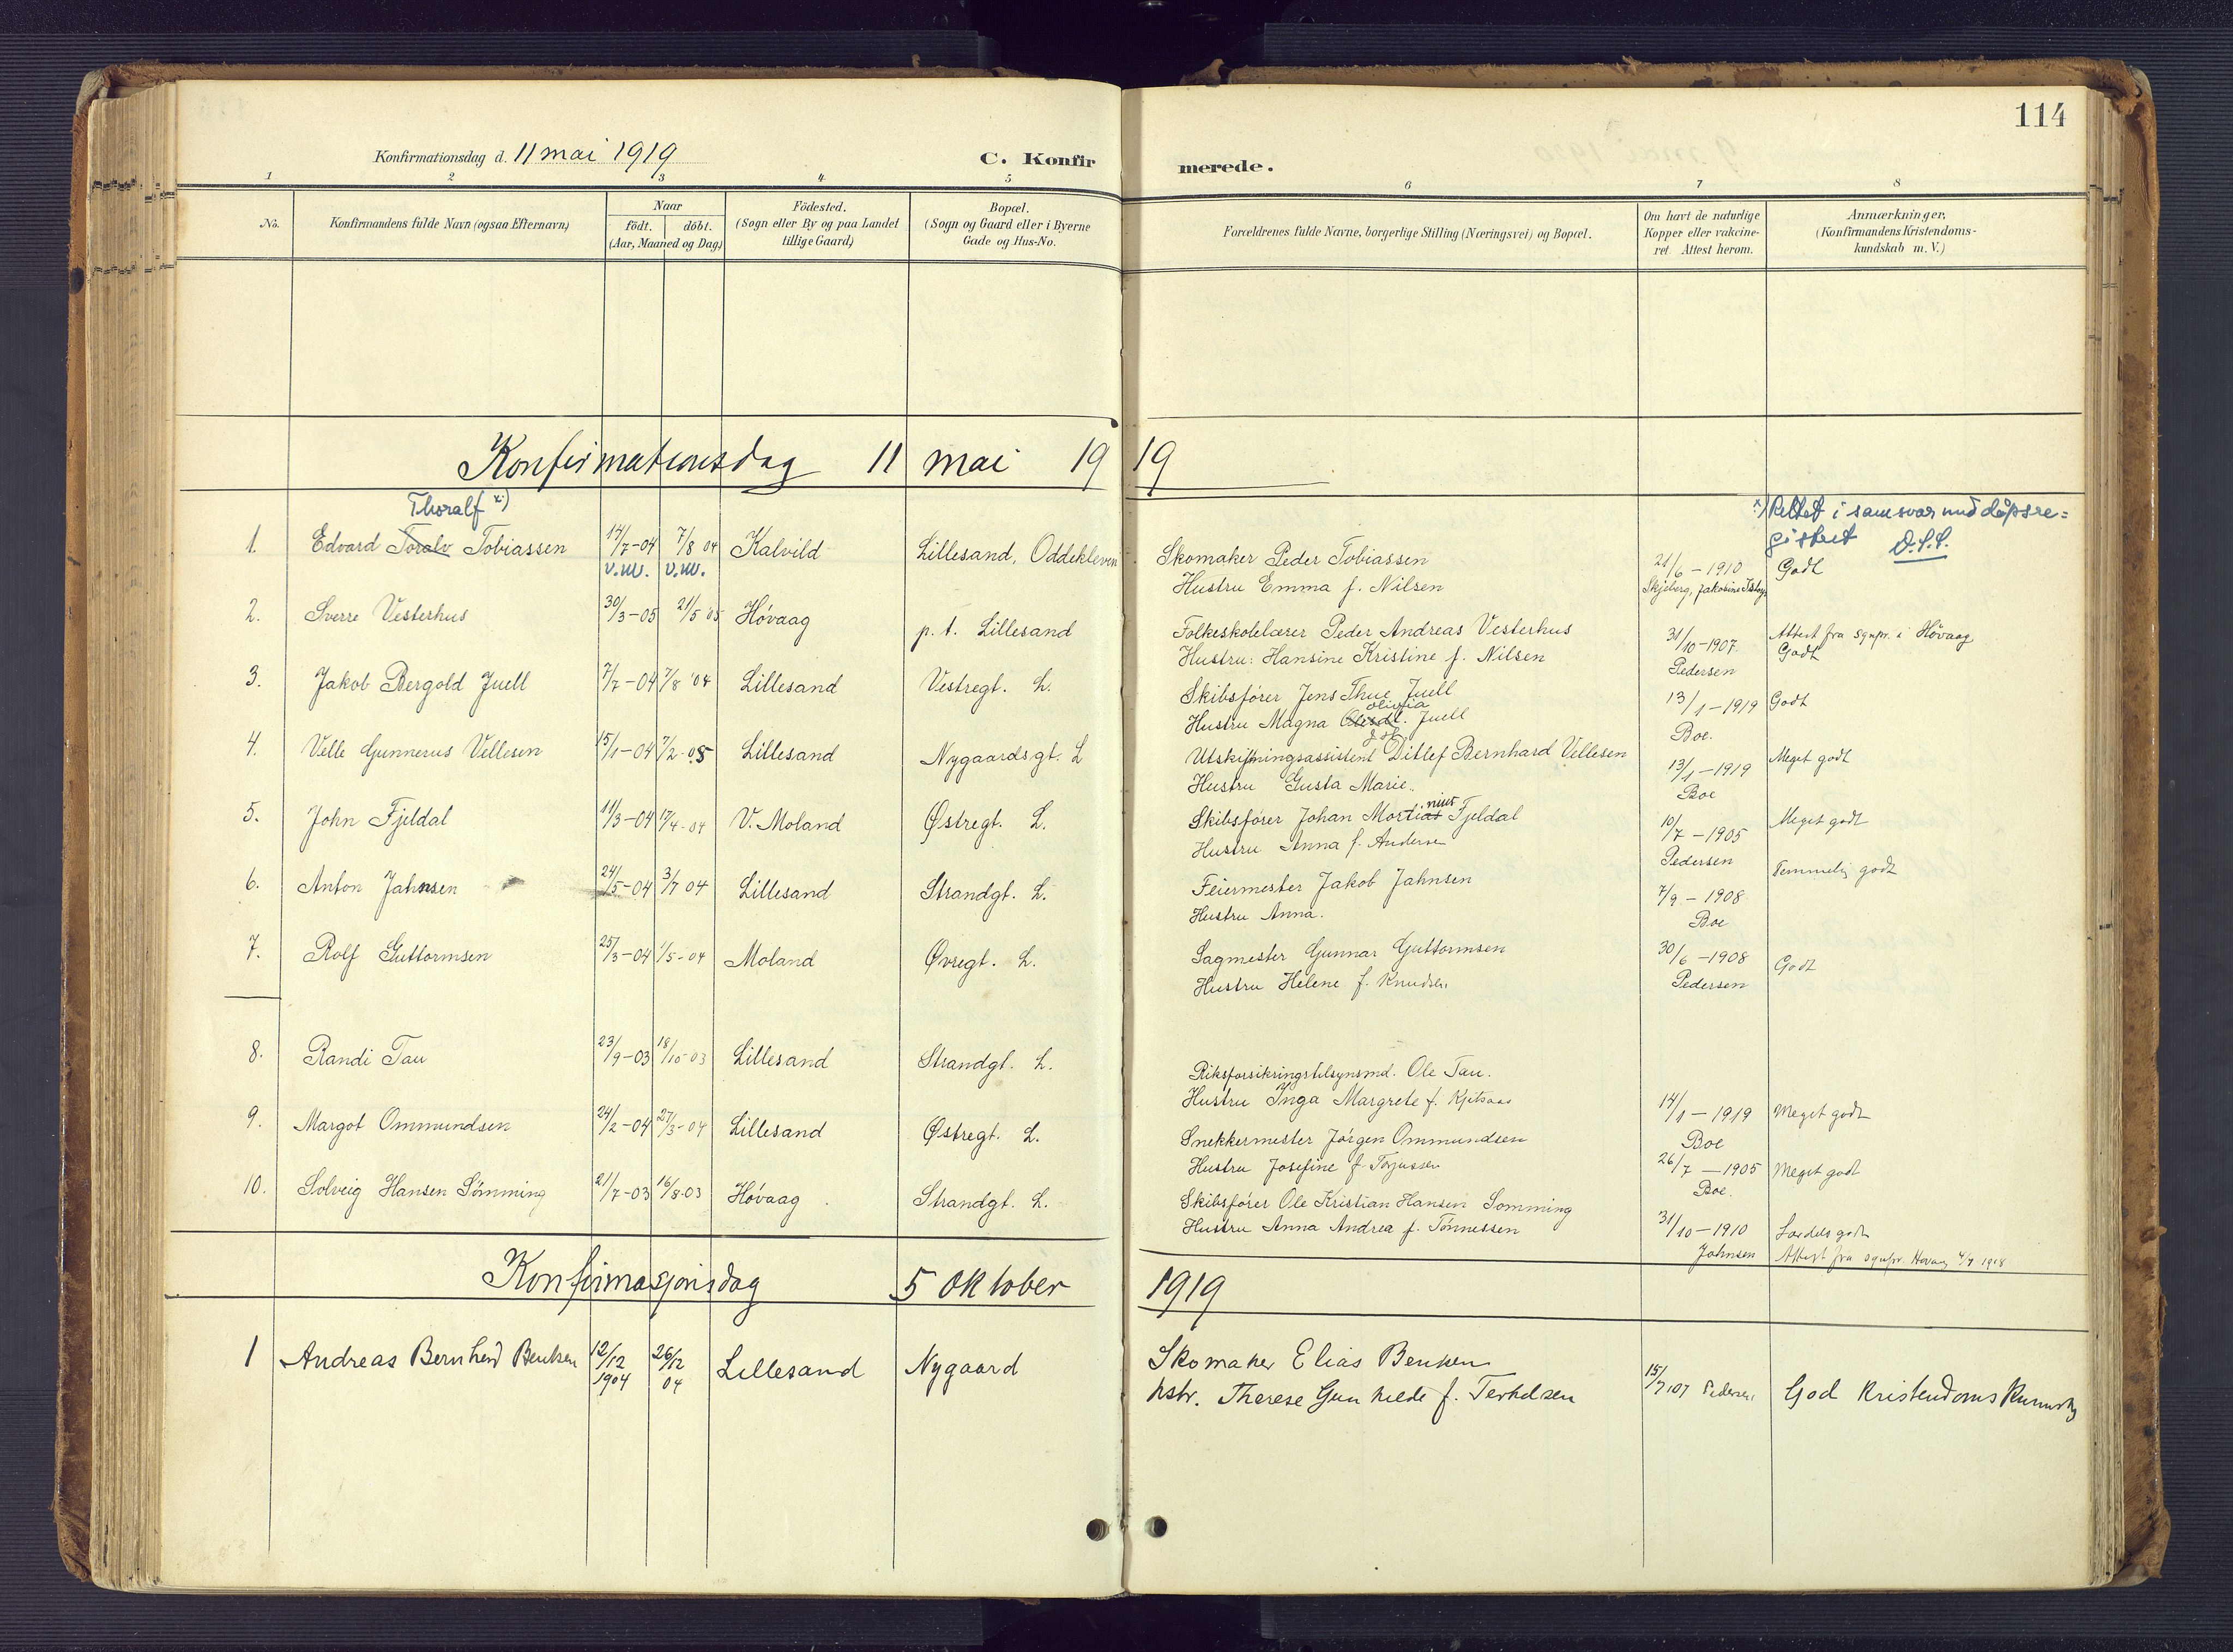 114
Konfirmationsdag d. 11 mai 1919
C. Konfirmerede.
1 2 3 4 5 6 7 8
No.
Konfirmandens fulde Navn (ogsaa Efternavn)
Naar
födt. döbt.
(Aar, Maaned og Dag)
Födested.
(Sogn eller By og paa Landet
tillige Gaard)
Bopæl.
(Sogn og Gaard eller i Byerne
Gade og Hus-No.
Forældrenes fulde Navne, borgerlige Stilling (Næringsvei) og Bopæl.
Om havt de naturlige
Kopper eller vakcine-
ret Attest herom.
Anmærkninger.
(Konfirmandens Kristendoms-
kundskab m. V.)
Konfirmationsdag 11 mai 1919
Thoralf x)
x) Rettet i samsvar med dåpsre=
gistret
1. Edvard Toralv Tobiassen 14/7-04 7/8 04 Kalvild Lillesand, Oddekleven Skomaker Peder Tobiassen 21/6-1910 Godt
v.m. v.m.
Hustru Emma f. Nilsen Skjeberg, Jakobine
2. Sverre Vesterhus 30/3-05 21/5 05 Høvaag p.t. Lillesand Folkeskolelærer Peder Andreas Vesterhus 31/10-1907. Attest fra sgnpr. i Høvaag
Hustru: Hansine Kristine f. Nilsen Pedersen Godt
3. Jakob Bergold Juell 7/7-04 7/8 '04 Lillesand Vestregt. L. Skibsfører Jens Thue Juell 13/1-1919 Godt
olivia
Hustru Magna f. Juell Boe.
4. Velle Gunnerus Vellesen 15/1-04 7/2-05 Lillesand Nygaardsgt. L Utskiftningsassistent Ditlef Bernhard Vellesen 13/1-1919 Meget godt
Hustru Gusta Marie. Boe
5. John Fjeldal 11/3-04 17/4-04 V. Moland Østregt. L. Skibsfører Johan Mortinius Fjeldal 10/7-1905 Meget godt
Hustru Anna f. Andersen Pedersen
6. Anton Jahnsen 24/5-04 3/7 04 Lillesand Strandgt. L. Feiermester Jakob Jahnsen 7/9-1908 Temmelig godt
Hustru Anna. Boe
7. Rolf Guttormsen 25/3-04 1/5-04 Moland Øvregt. L. Sagmester Gunnar Guttormsen 30/6-1908 Godt
Hustru Helene f. Knudsen Pedersen
8. Randi Tau 23/9-03 18/10-03 Lillesand Strandgt. L. Riksforsikringstilsynsmd. Ole Tau. 14/1-1919 Meget godt
Hustru Inga Margrete f. Boe
9. Margot Ommundsen 24/2-04 27/3-04 Lillesand Østregt. L. Snekkermester Jørgen Ommundsen 26/7-1905 Meget godt
Hustru Josefine f. Torjussen Boe.
10. Solveig Hansen Sömming 21/7-03 16/8-03 Høvaag Strandgt. L. Skibsfører Ole Kristian Hansen Somming 31/10-1910 Særdeles godt
Hustru Anna Andrea f. Tönnessen Johnsen Attest fra sgnpr. Høvaag 1918
Konfirmasjonsdag 5 Oktober 1919
1 Andreas Bernhard Bentsen 12/12 1904 26/12 04 Lillesand Nygaard Skomaker Elias Bentsen 15/7 07 Pedersen God Kristendomskunnsk
hstr. Therese Gunhilde f. Terkelsen